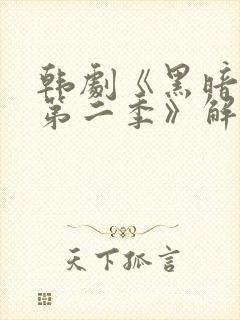 韩劇《黑暗
第二季》解
天下孤言